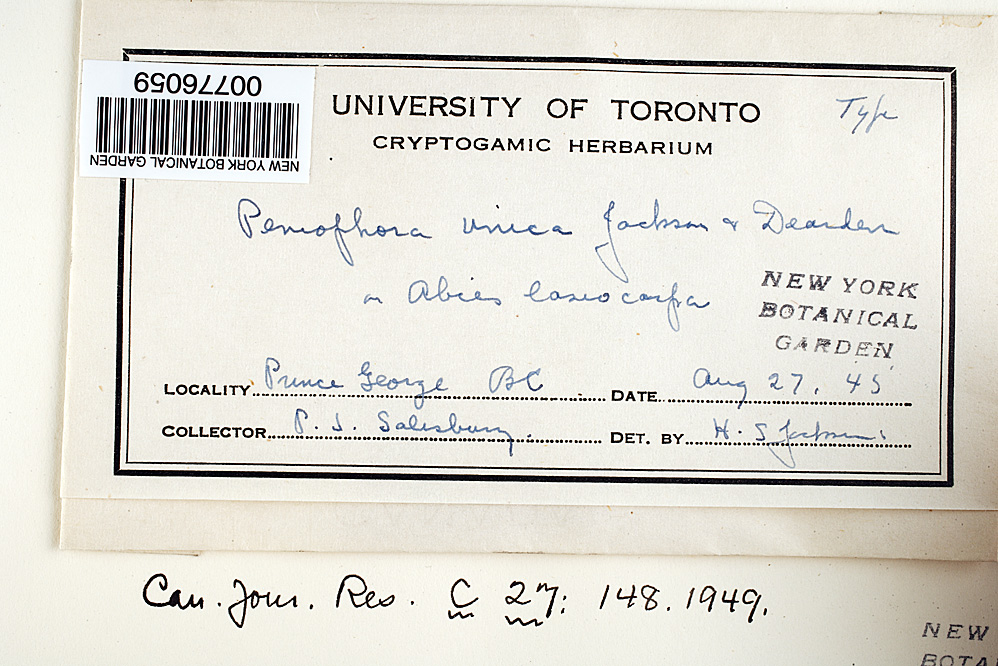 00776059
NEW YORK BOTANICAL GARDEN
UNIVERSITY OF TORONTO
Type
CRYPTOGAMIC HERBARIUM
Peniophora unica Jackson & Dearden
on Abies lasiocarpa
NEW YORK
BOTANICAL
GARDEN
LOCALITY Prince George BC DATE Aug 27, 45
COLLECTOR P. J. Salisbury. DET. BY H. S Jackson
Can. Jour. Res. C 27: 148. 1949.
NEW
BOTA